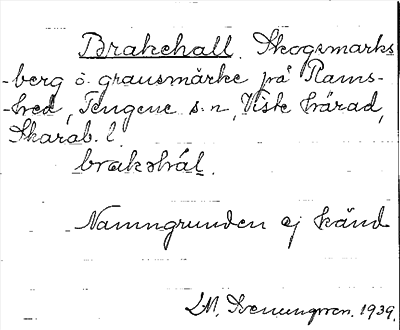 Brakehall. Skogsmarks-
-berg o. gränsmärke på Rams-
-hed, Tengene s:n, Viste härad,
Skarab. l.
brakəhál.
Namngrunden ej känd
I.M. Svenungsson. 1939.